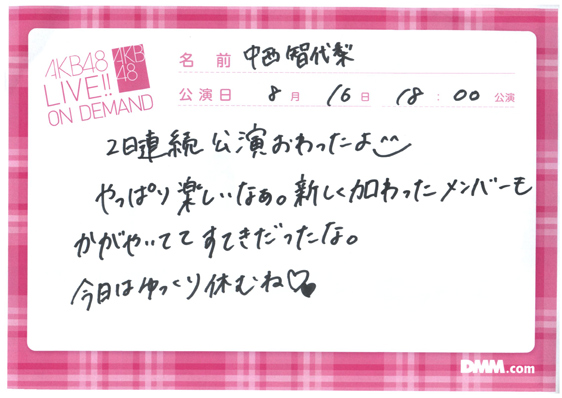 AKB48
LIVE!!
ON DEMAND
AKB
48
名前 中西智代梨
公演日 8月 16日 18:00 公演
2日連続 公演おわったよ
やっぱり楽しいなぁ。新しく加わったメンバーも
かがやいてて すてきだったな。
今日はゆっくり休むね♡♥
DMM.com